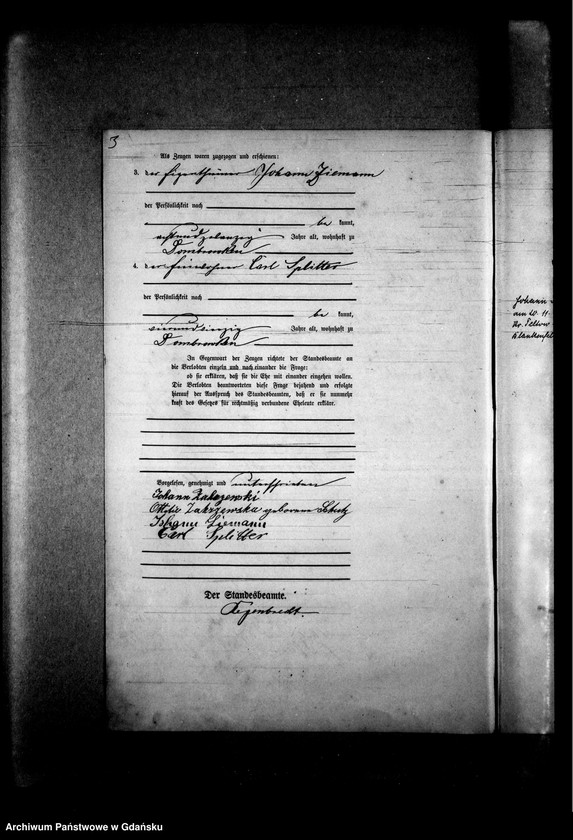 3
Als Zeugen waren zugezogen und erschienen:
3. der Eigenthümer Johann Ziemann
der Persönlichkeit nach
be kannt,
Jahre alt, wohnhaft zu
Dombrowken
4. der Einwohner Carl Splitter
der Persönlichkeit nach
be kannt,
Jahre alt, wohnhaft zu
Dombrowken
In Gegenwart der Zeugen richtete der Standesbeamte an
die Verlobten einzeln und nach einander die Frage:
ob sie erklären, daß sie die Ehe mit einander eingehen wollen.
Die Verlobten beantworteten diese Frage bejahend und erfolgte
hierauf der Ausspruch des Standesbeamten, daß er sie nunmehr
kraft des Gesetzes für rechtmäßig verbundene Eheleute erkläre.
Vorgelesen, genehmigt und unterschrieben
Johann Zakrzewski
Ottilie Zakrzewska geborene
Johann Ziemann
Carl Splitter
Der Standesbeamte.
Johann
am 20. 11.
Archiwum Państwowe w Gdańsku